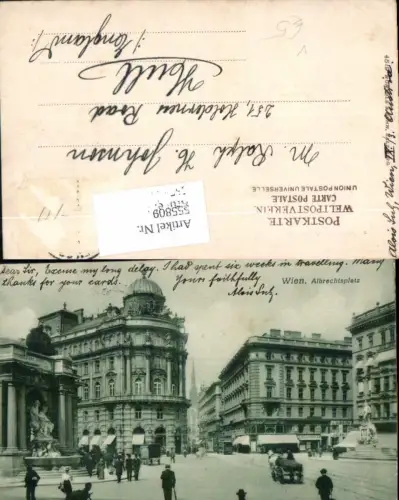 POSTKARTE
WELTPOSTVEREIN.
CARTE POSTALE
UNION POSTALE UNIVERSELLE
Mr. Ralph H. Johnson
251, Holderness Road
Hull
(England)
65
Artikel Nr.
555809
Dear Sir, Excuse my long delay. I had spent six weeks in travelling. Many
thanks for your cards. Yours faithfully
Wien, Albrechtsplatz